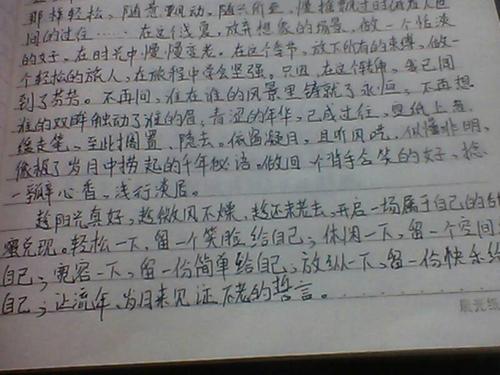 那样轻松，随意飘动，随兴所至，慢推飘过时流看人世
间的过往……在这个浅夏，放弃想象的场景，做一个恬淡
的女子，在时光中慢慢变老。在这个季节，放下所有的束缚，做一
个轻松的旅人，在旅程中学会坚强。只因，在这个转角，我已闻
到了芬芳。不再问，谁在谁的风景里铸就了永恒，不再想
谁的双眸触动了谁的眉，青涩的年华，已成过往，
至此搁置、隐去。依窗凝目，且听风吟，似懂非明，
像极了岁月中捞起的千年秘语。做回一个背手含笑的女子，捻
一瓣心香，浅行淡居。
趁阳光真好，趁微风不燥，趁还未老去，开启一场属于自己的
兑现。轻松一下，留一个笑脸给自己；休闲一下，留一个空间
自己；宽容一下，留一份简单给自己；放纵一下，留一份快乐给
自己；让流年、岁月来见证不老的誓言。
晨光